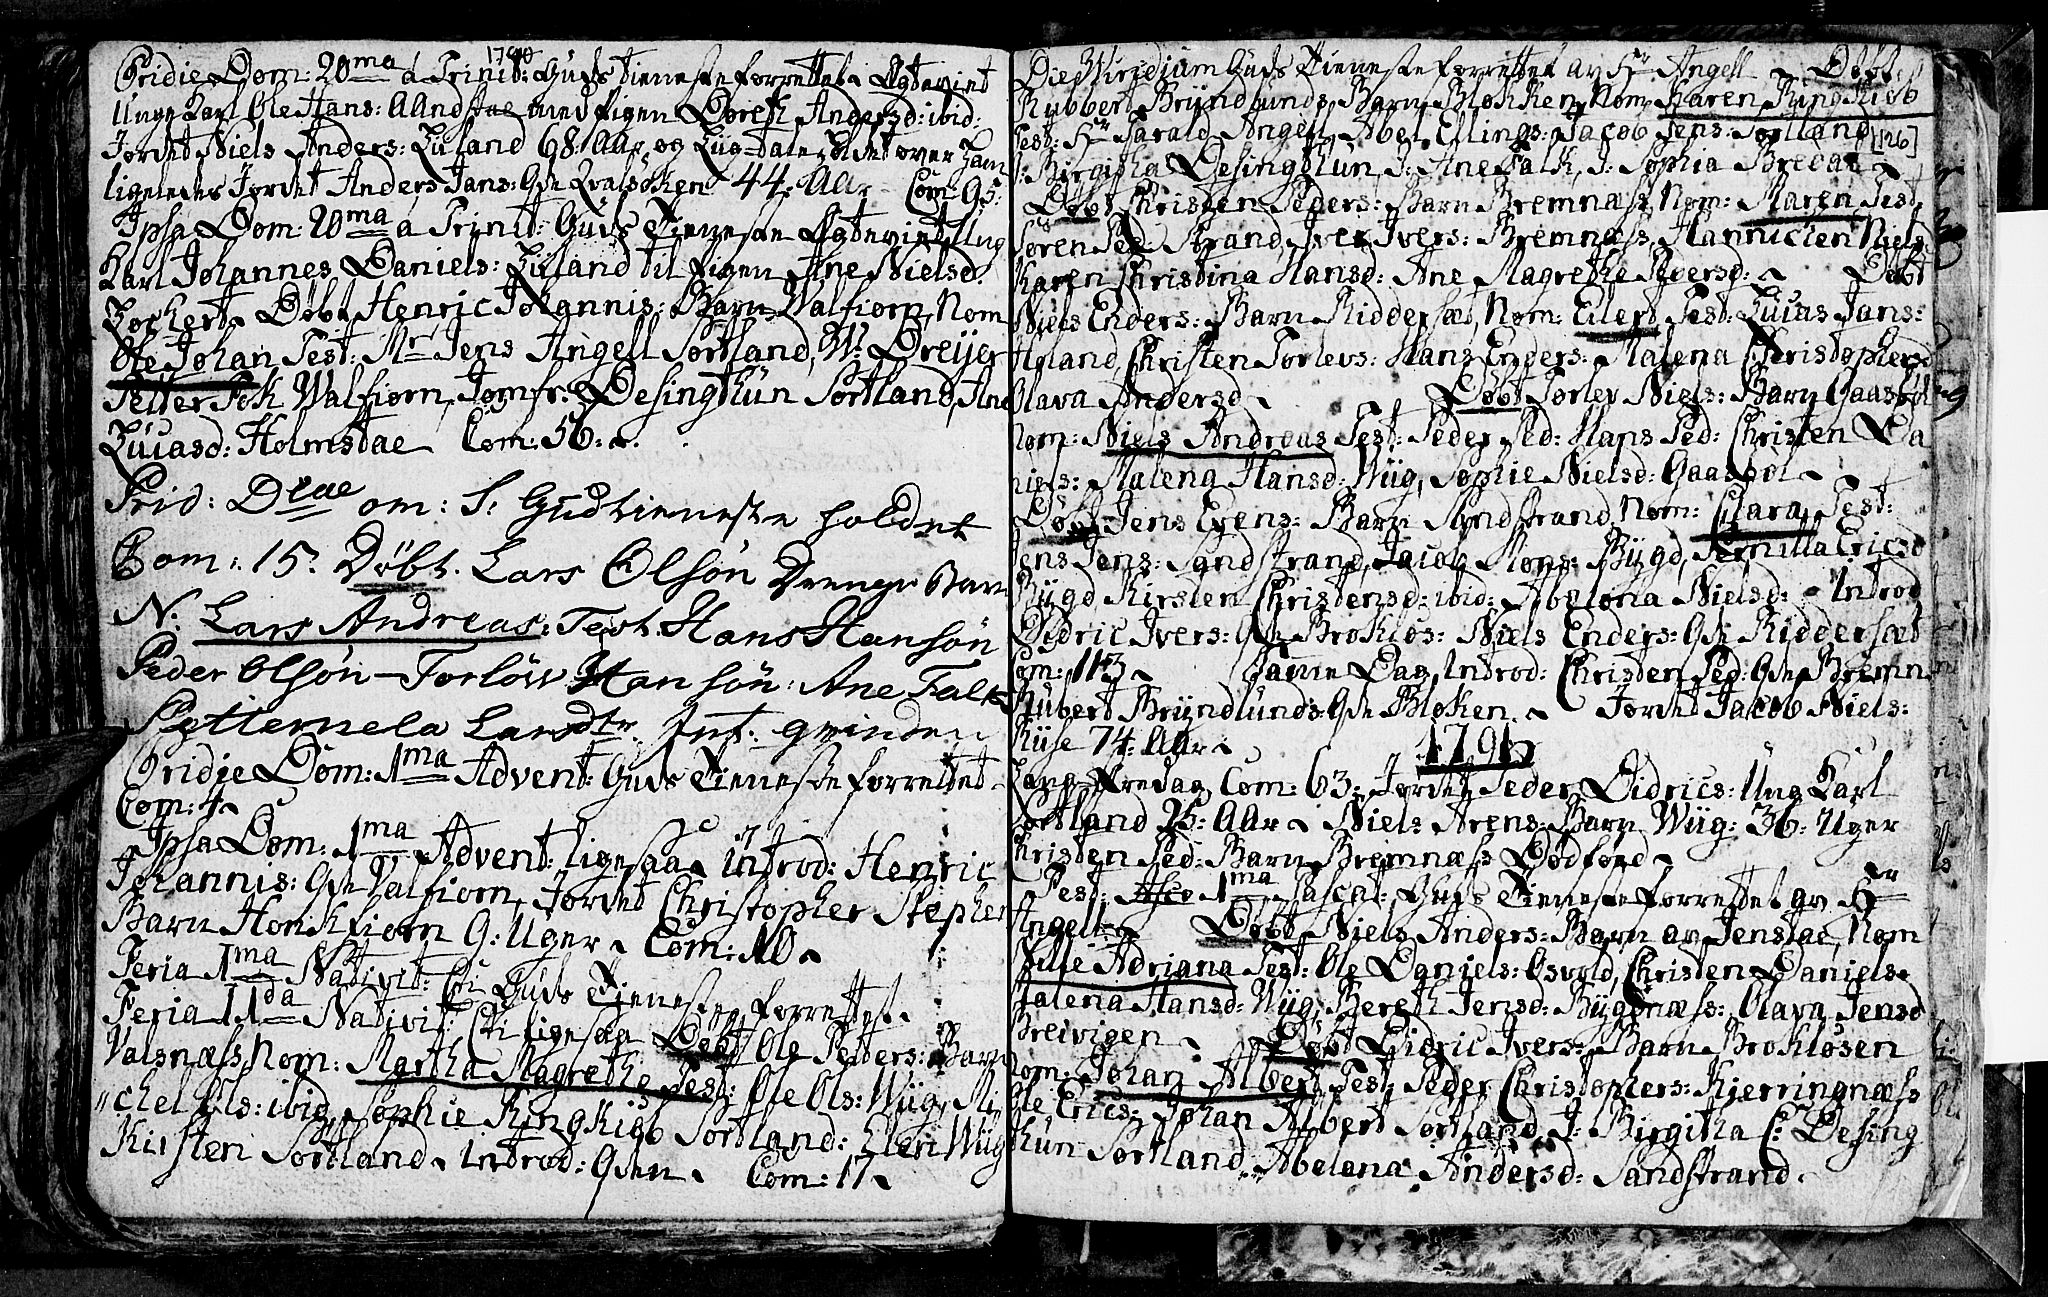 1790
Pridie Dom: 20ma á Trinit: Guds tieneste forrettet. Egteviet
Unge Karl Ole Hans: Aandstae med Pigen Doreth Andersd: ibid:
Jordet Niels Anders: Lüland 68 Aar og Liig-tale holdet over ham
ligeledes Jordet Anders Jans: Qde Kvalsöken 44: Aar Com: 95:
Ipsa Dom: 20ma á Trinit: Guds Tieneste Egteviet Ung
Karl Johannes Daniels: Lüland til Pigen Ane Nielsd:
Lockert Døbt Henric Johannis: Barn Valfiorn, Nom
Ole Johan Test: Mr Jens Angell Sortland, W: Dreijer
Petter Falk Walfiorn, Jomfr: Desingthün Sortland, Ane
Lücasd: Holmstae Com: 56:
Prid: D om: S: Gudtieneste holdet
Com: 15. Døbt. Lars Olsön Drenge Barn
N: Lars Andreas: Test. Hans Hansön
Peder Olsön - Torlöw Hansön: Ane Falk
Petternela Larsdtr. Int: qvinden
Pridie Dom: 1ma Advent: Guds Tieneste forrettet
Com: 4
Ipsa Dom: 1ma Advent: ligesaa introd: Henric
Johannis: Qde Valfiorn, Jordet Christopher Stephens
Barn Honkfiorn 9: Uger Com: 10
Feria 1ma Nativit: Cti Guds Tieneste forrettet
Feria 11da Nativit: Cti ligesaa Døbt Ole Petters: Barn
Valsnæss, Nom: Martha Magrethe Test: Ole Ols: Wiig, Mi
chel Ols: ibid, Sophie Ringkiøb Sortland: Elen Wiig
Kirsten Sortland introd: Qden Com: 17
Die Viridium Guds Tieneste forrettet av Hr Angell Døbt
Rubbert Bryndlunds Barn Blokken, Nom: Karen Ringkiøb
Test: Hr Tarald Angell, Abel Ellings: Jacob Jens: Sortland [126]
J: Birgitha Desingthün, J: Ane Falk, J: Sophia Bredal
Døbt Christen Peders: Barn Bremnæss, Nom: Maren Test
Søren Ped: Strand, Iver Ivers: Bremnæss, Hannicken Niels
Karen Christina Hansd: Ane Magrethe Pedersd: Døbt
Niels Enders: Barn Riddersæt, Nom: Eilert Test: Lucas Jans:
Holand, Christen Torlevs: Hans Enders: Malena Christophersd
Olava Andersd Døbt Torlev Niels: Barn Gaasbøl
Nom: Niels Andreas Test: Peder Ped: Hans Ped: Christen Da
niels: Malena Hansd: Wiig, Sophie Nielsd: Gaasbøl
Døbt Jens Evens: Barn Sandstrand, Nom: Clara, Test:
Jens Jens: Sandstrand, Jacob Mons: Bÿgd, Pernilla Ericsd
Bÿgd, Kirsten Christensd: ibid: Abelona Nielsd: Introd
Didric Ivers: Qde Brokløs: Niels Enders: Qde Riddersæt
Com: 113 Samme Dag Introd: Christen Ped: Qde Bremn
Rubert Bryndlunds Qde Bloken Jordet Jacob Niels:
Rise 74: Aar 1791
Lang-Fredag Com: 63: Jordet Peder Didrics: Ung Karl
Sortland 25: Aar Niels Arens: Barn Wiig: 36: Uger
Christen Ped: Barn Bremnæss Dødfød
Fest: 1ma Pascat: Guds Tieneste forrettet av Hr
Angell Døbt Niels Anders: Barn av Jenstae, Nom
Silie Adriana Test: Ole Daniels: Osvold, Christen Daniels
Malena Hansd: Wiig, Bereth Jensd: Bygenæss: Olava Jensd
Breivigen Døbt Didric Ivers: Barn Brokløsen
Nom: Johan Albert Test: Peder Christophers: Kjerringnæss
Ole Erics: Johan Albert Sortland J: Birgitha C: Desing
thün Sortland Abelena Andersd: Sandstrand